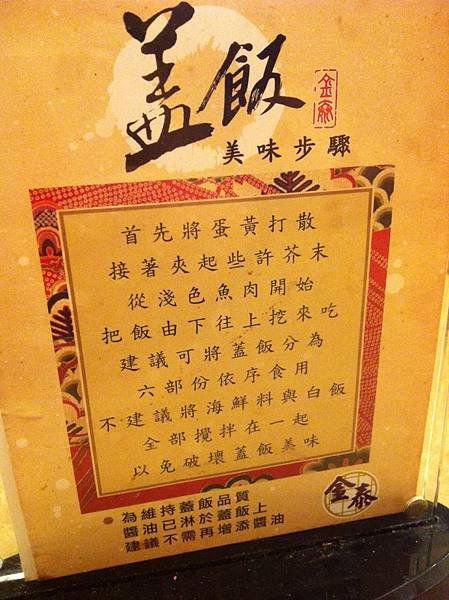 盖飯
金泰
美味步驟
首先將蛋黃打散
接著夾起些許芥末
從淺色魚肉開始
把飯由下往上挖來吃
建議可將蓋飯分為
六部份依序食用
不建議將海鮮料與白飯
全部攪拌在一起
以免破壞蓋飯美味
為維持蓋飯品質
醬油已淋於蓋飯上
建議不需再增添醬油
金泰